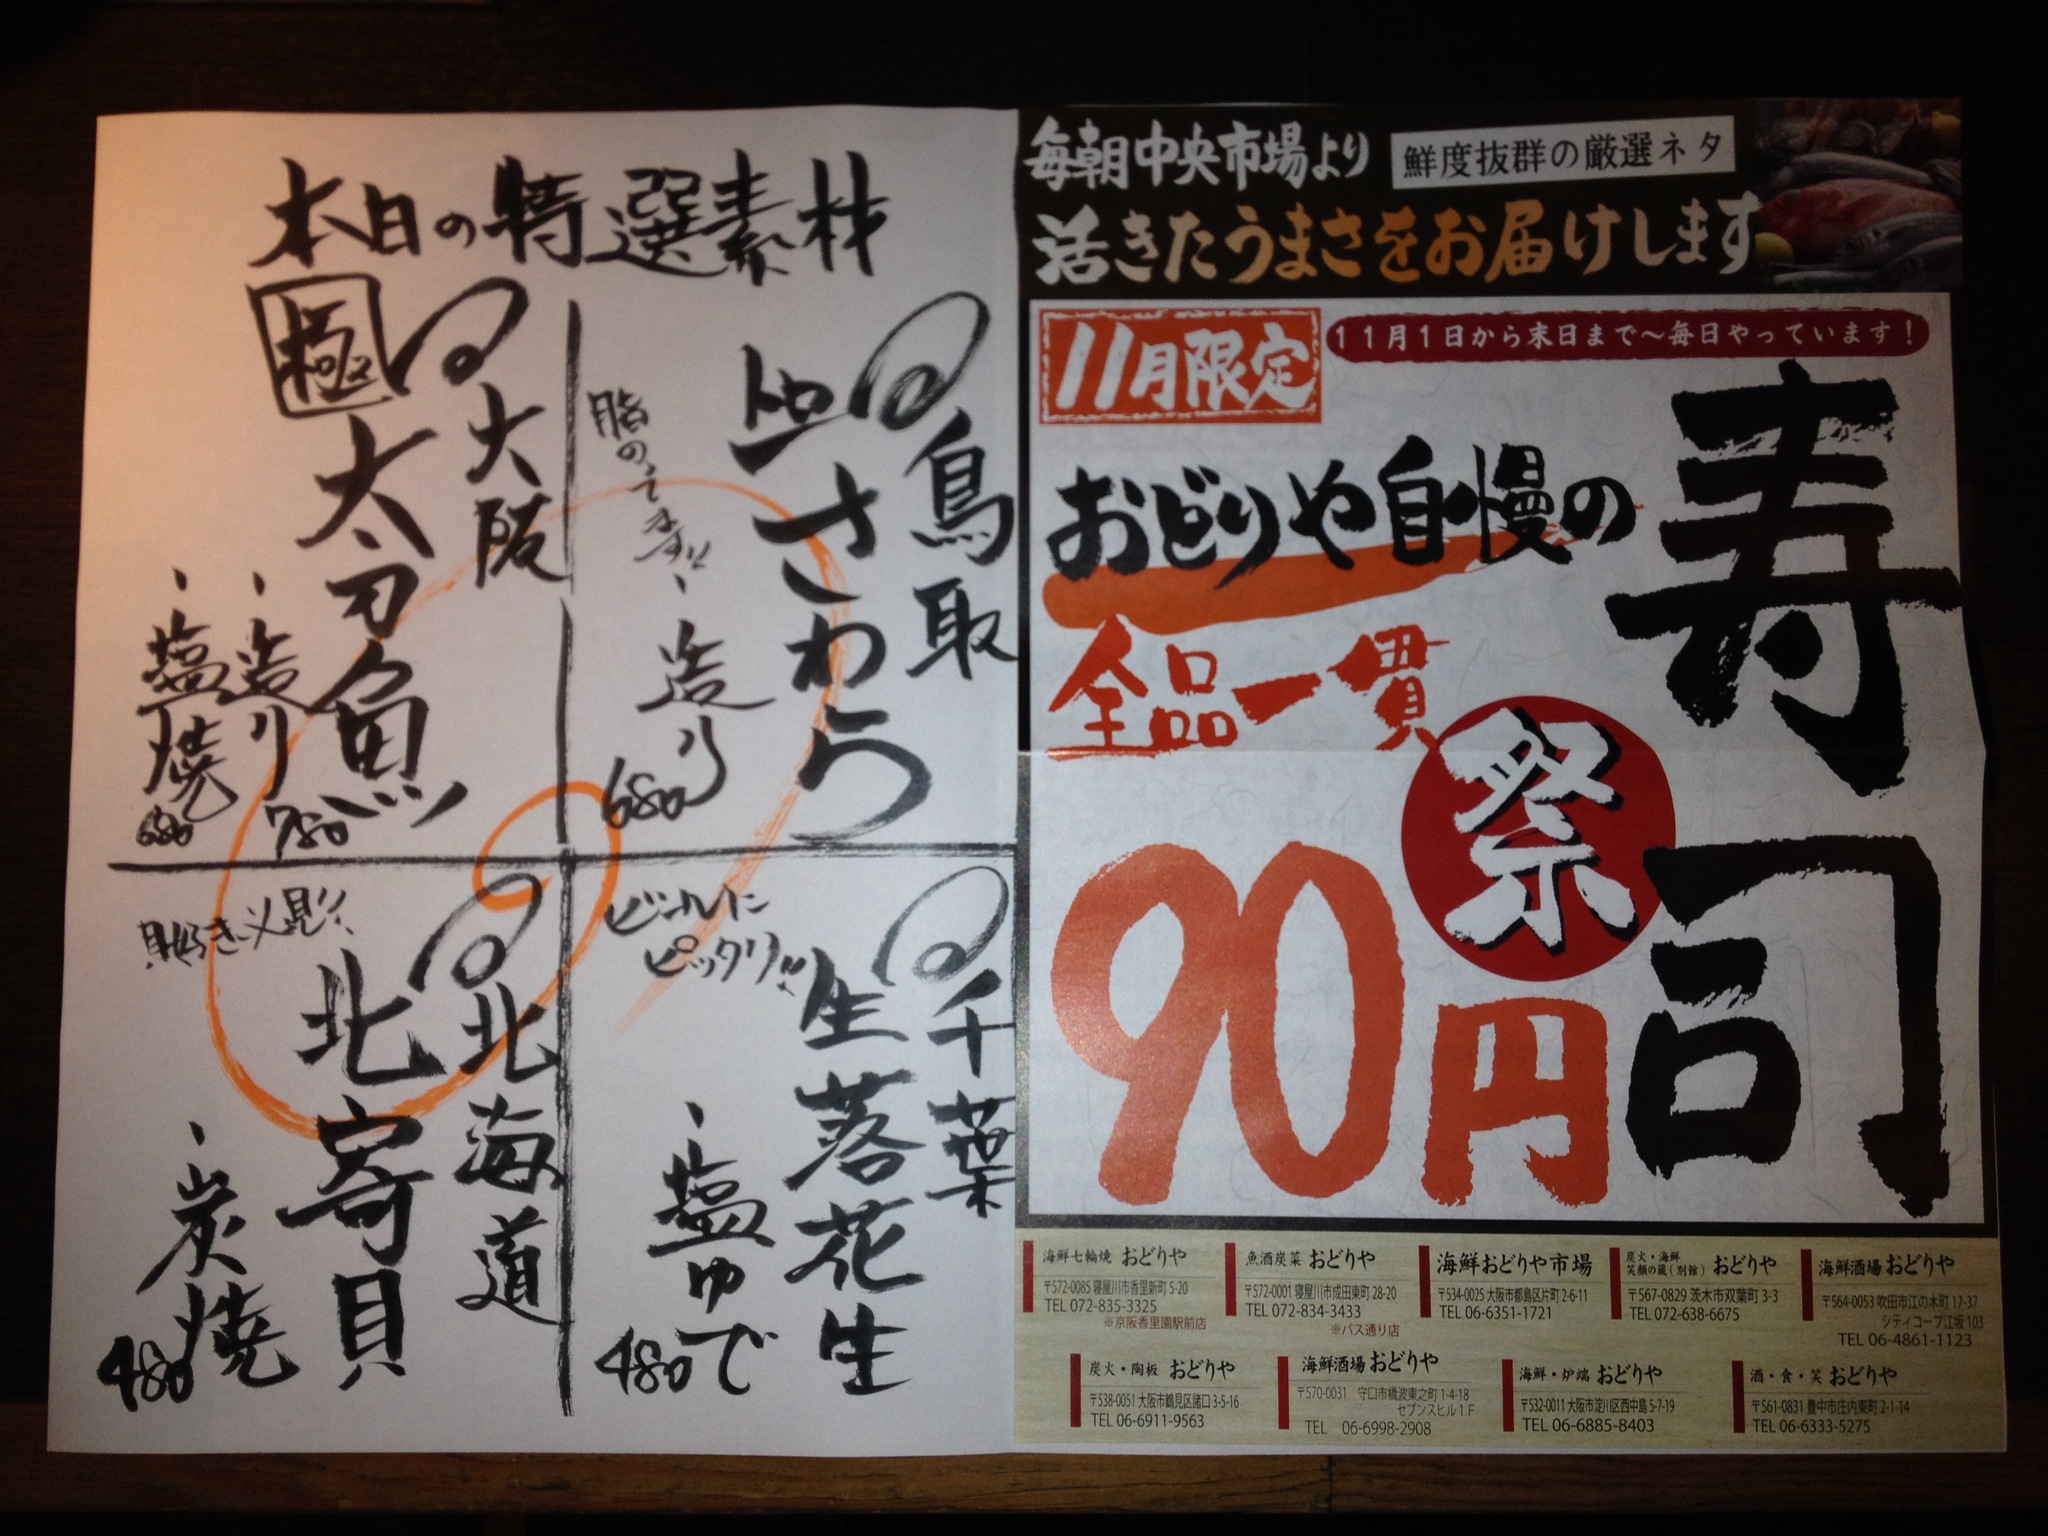 本日の特選素材
鳥取
生さわら
脂のってます!!
、造り
680
大阪
極
太刀魚
、造り
780
、塩焼
680
千葉
生落花生
ビールに
ピッタリ!!
、塩ゆで
480
北海道
北寄貝
貝好き必見!!
、炭焼
480
毎朝中央市場より
鮮度抜群の厳選ネタ
活きたうまさをお届けします
11月限定
11月1日から末日まで〜毎日やっています!
おどりや自慢の
寿司
祭
全品一貫
90円
海鮮七輪焼 おどりや
〒572-0085 寝屋川市香里新町 5-20
TEL 072-835-3325
※京阪香里園駅前店
魚酒炭菜 おどりや
〒572-0001 寝屋川市成田東町 28-20
TEL 072-834-3433
※バス通り店
海鮮おどりや市場
〒534-0025 大阪市都島区片町 2-6-11
TEL 06-6351-1721
炭火・海鮮
笑顔の蔵(別館) おどりや
〒567-0829 茨木市双葉町 3-3
TEL 072-638-6675
海鮮酒場 おどりや
〒564-0053 吹田市江の木町 17-37
シティコープ江坂 103
TEL 06-4861-1123
炭火・陶板 おどりや
〒538-0051 大阪市鶴見区諸口 3-5-16
TEL 06-6911-9563
海鮮酒場 おどりや
〒570-0031 守口市橋波東之町 1-4-18
セブンスヒル1F
TEL 06-6998-2908
海鮮・炉端 おどりや
〒532-0011 大阪市淀川区西中島 5-7-19
TEL 06-6885-8403
酒・食・笑 おどりや
〒561-0831 豊中市庄内東町 2-1-14
TEL 06-6333-5275